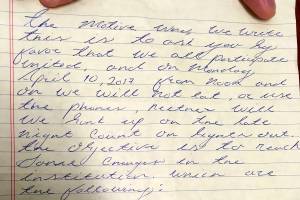 The motive why we write
this is to ask you by
favor that we all participate
united, and on Monday
April 10, 2017 from noon and
on we will not eat, or use
the phones, neither will
we
night count on lights out.
the objective is to reach
some changes in the
institution. which are
the following: